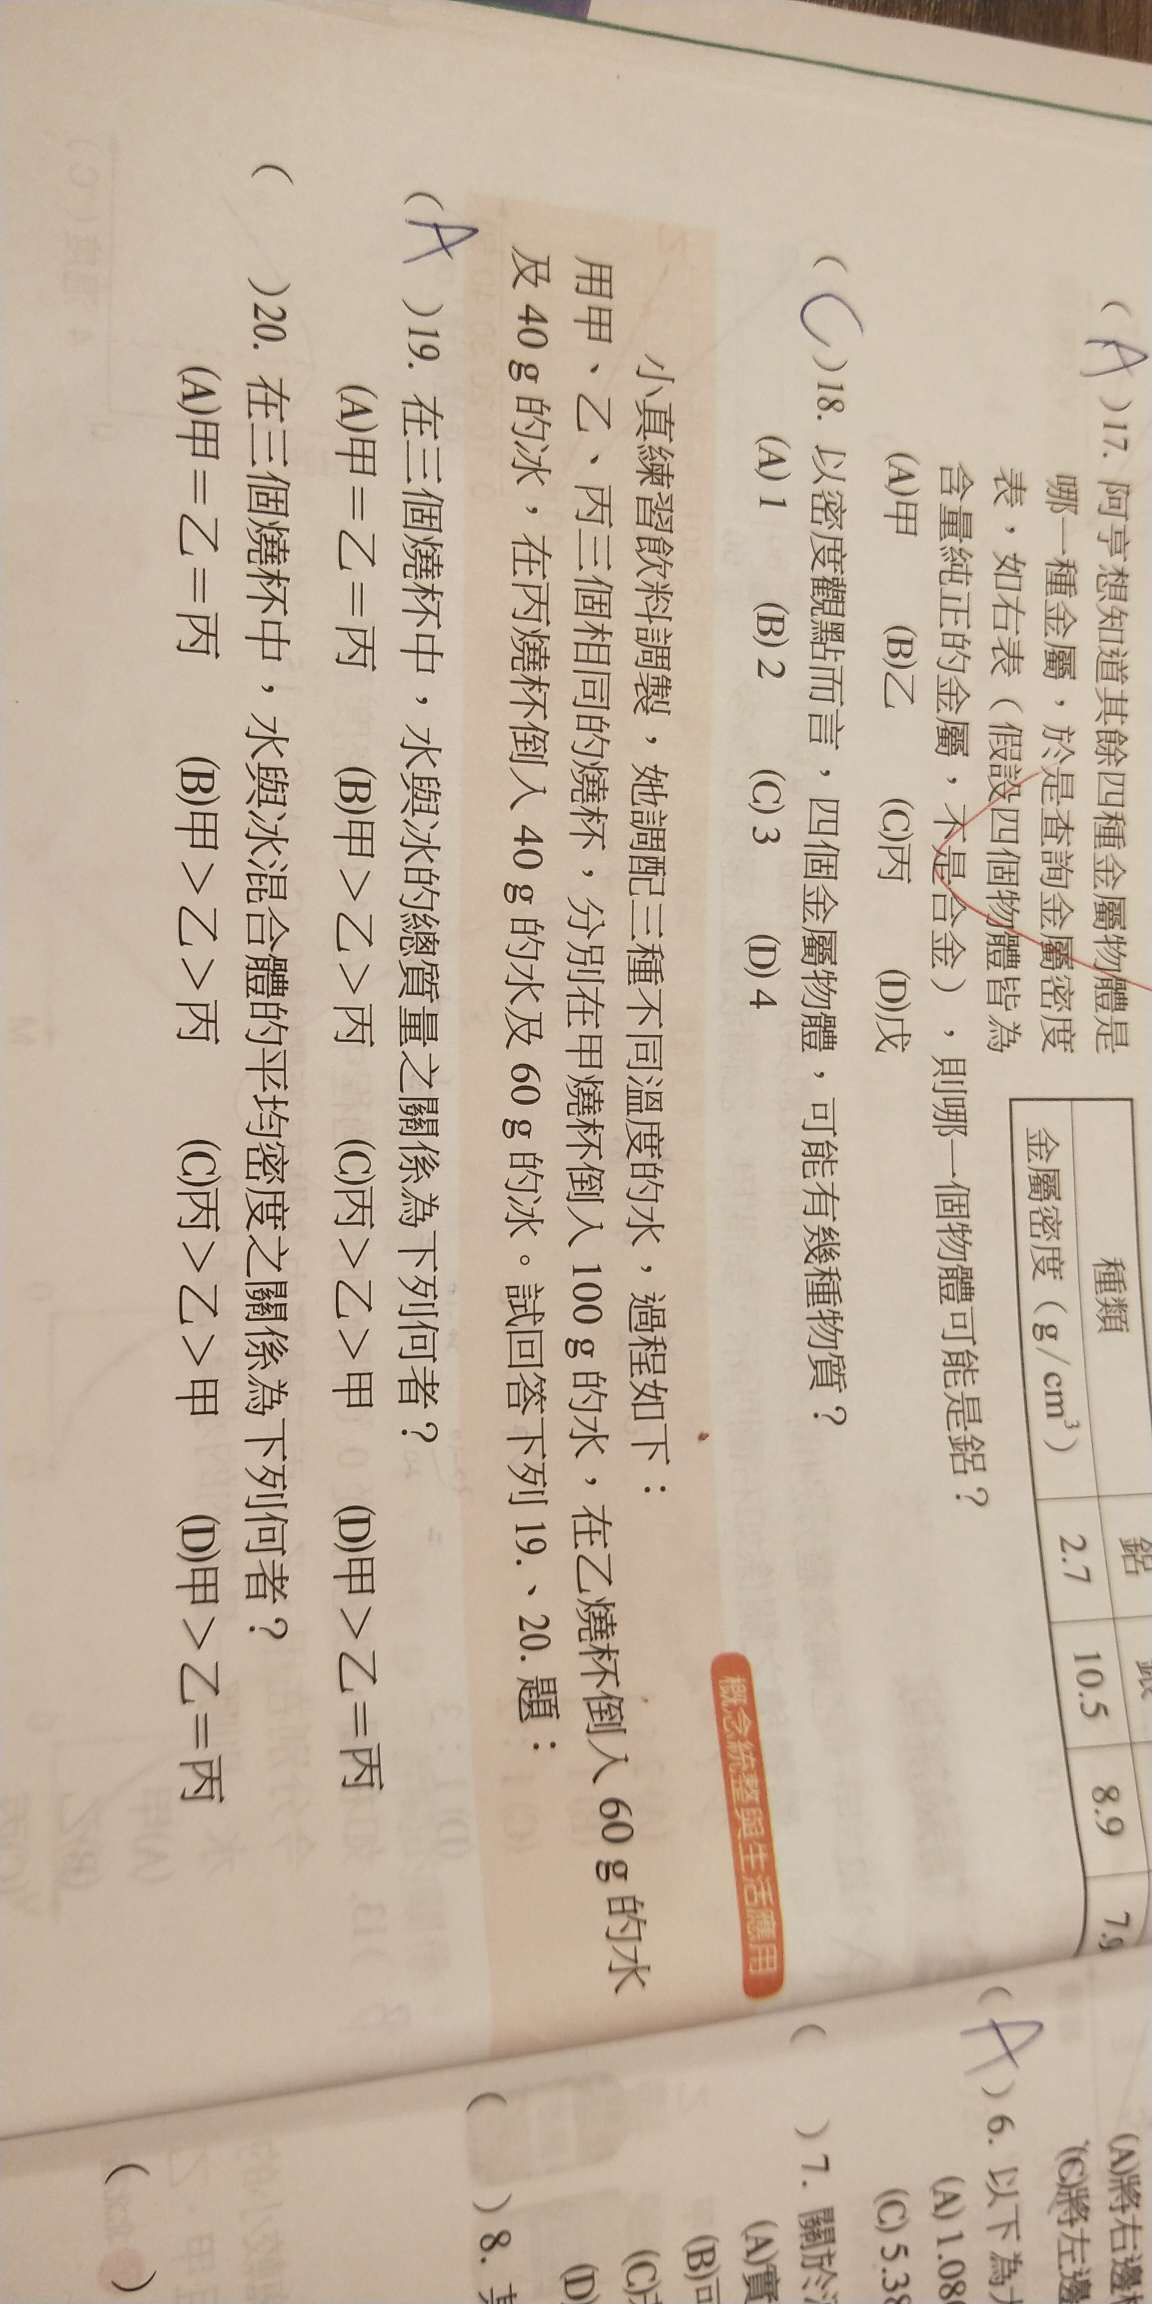 (A)17. 阿亨想知道其餘四種金屬物體是
哪一種金屬，於是查詢金屬密度
表，如右表（假設四個物體皆為
含量純正的金屬，不是合金），則哪一個物體可能是鋁？
(A)甲 (B)乙 (C)丙 (D)戊
種類 鋁
金屬密度（g/cm³） 2.7 10.5 8.9
(C)18. 以密度觀點而言，四個金屬物體，可能有幾種物質？
(A) 1 (B) 2 (C) 3 (D) 4
概念統整與生活應用
小真練習飲料調製，她調配三種不同溫度的水，過程如下：
用甲、乙、丙三個相同的燒杯，分別在甲燒杯倒入 100 g 的水，在乙燒杯倒入 60 g 的水
及 40 g 的冰，在丙燒杯倒入 40 g 的水及 60 g 的冰。試回答下列 19.、20. 題：
(A)19. 在三個燒杯中，水與冰的總質量之關係為下列何者？
(A)甲＝乙＝丙 (B)甲＞乙＞丙 (C)丙＞乙＞甲 (D)甲＞乙＝丙
( )20. 在三個燒杯中，水與冰混合體的平均密度之關係為下列何者？
(A)甲＝乙＝丙 (B)甲＞乙＞丙 (C)丙＞乙＞甲 (D)甲＞乙＝丙
(A)將右邊
(C)將左邊
(A) 6. 以下為
(A) 1.08
(C) 5.38
( ) 7. 關於
(A)實
(B)可
(C)
(D)
( ) 8.
( )